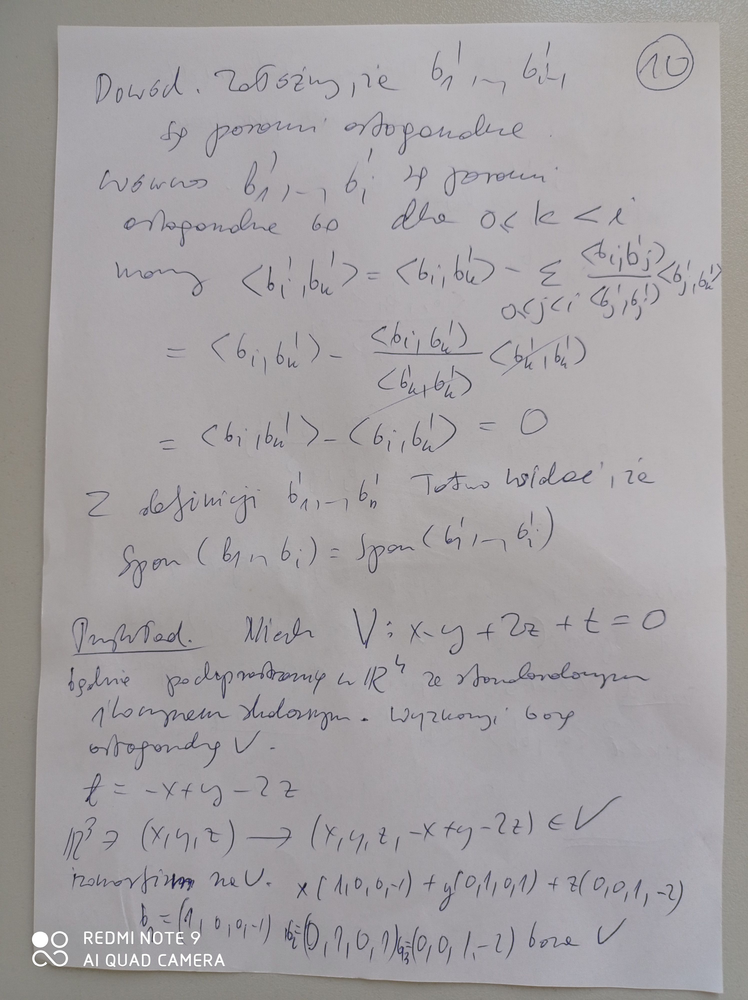 10
Dowód. Załóżmy, że b₁', ..., b'ᵢ₋₁
są parami ortogonalne.
wówczas b₁', ..., bᵢ' są parami
ortogonalne bo dla 0 < k < i
mamy <bᵢ', bₖ'> = <bᵢ, bₖ'> - Σ_{0<j<i} <bᵢ, bⱼ'>/<bⱼ', bⱼ'> <bⱼ', bₖ'>
= <bᵢ, bₖ'> - <bᵢ, bₖ'>/<bₖ', bₖ'> <bₖ', bₖ'>
= <bᵢ, bₖ'> - <bᵢ, bₖ'> = 0
Z definicji b₁', ..., bₙ' łatwo widać, że
Span(b₁, .., bᵢ) = Span(b₁', ..., bᵢ')
Przykład. Niech V: x - y + 2z + t = 0
będzie podprzestrzenią w ℝ⁴ ze standardowym
iloczynem skalarnym. Wyznaczyć bazę
ortogonalną V.
t = -x + y - 2z
ℝ³ ∋ (x, y, z) → (x, y, z, -x + y - 2z) ∈ V
izomorfizm na V. x(1, 0, 0, -1) + y(0, 1, 0, 1) + z(0, 0, 1, -2)
b₁ = (1, 0, 0, -1) b₂ = (0, 1, 0, 1) b₃ = (0, 0, 1, -2) baza V
REDMI NOTE 9
AI QUAD CAMERA